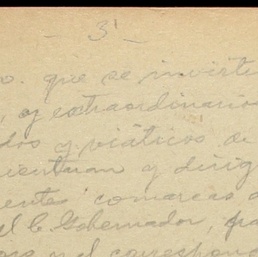 - 3 -
o. que se invirti
, y extraordinarios
dos y viáticos de
cuentran y dirig
ente comarcas d
el C. Gobernador, pa
y el correspond